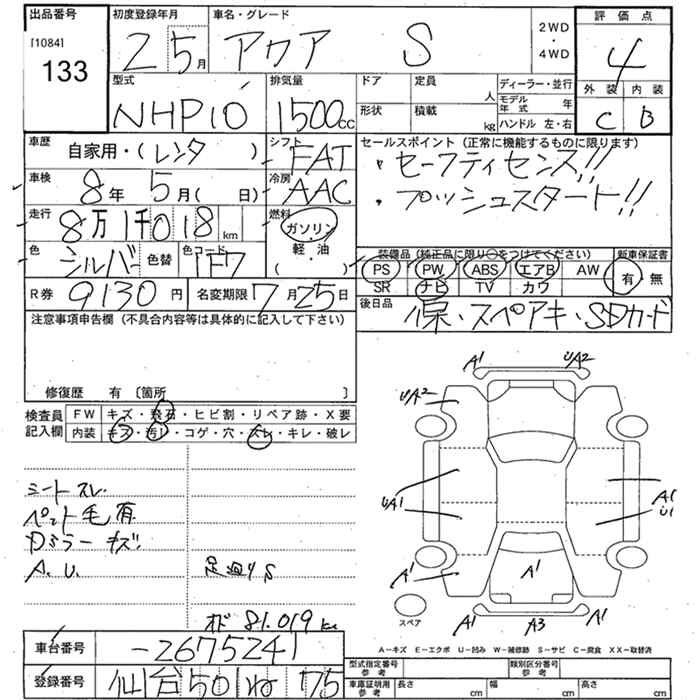 出品番号 初度登録年月 車名・グレード 2WD・4WD 評価点
[1084] 133 25 5月 アクア S 4
型式 排気量 ドア 定員 人 ディーラー・並行 外装 内装
NHP10 1500cc 形状 積載 kg モデル年式 年 C B
ハンドル 左・右
車歴 自家用・(レンタ) シフト FAT セールスポイント(正常に機能するものに限ります)
・セーフティセンス!!
車検 8年 5月( 日) 冷房 AAC ・プッシュスタート!!
走行 8万1千018km 燃料 ガソリン・軽油( )
色 シルバー 色替 色コード 1F7 装備品(純正品に限り○をつけてください) 新車保証書
PS PW ABS エアB AW 有・無
SR ナビ TV カワ
R券 9130円 名変期限 7月25日 後日品 保・スペアキ・SDカード
注意事項申告欄(不具合内容等は具体的に記入して下さい)
修復歴 有 〔箇所 〕
検査員記入欄 FW キズ・飛石・ヒビ割・リペア跡・X要
内装 キズ・汚レ・コゲ・穴・スレ・キレ・破レ
シートスレ
ペット毛有
Dミラーキズ
A.U. 足廻りS
オド 81.019km
車台番号 -2675241
登録番号 仙台501 ね 75
A1 UA2
UA2
UA1 A1
U1
A1 A1 A1
スペア A1 A3 A1
A-キズ E-エクボ U-凹み W-補修跡 S-サビ C-腐食 XX-取替済
型式指定番号 参考 類別区分番号 参考
車庫証明用 参考 長さ cm 幅 cm 高さ cm